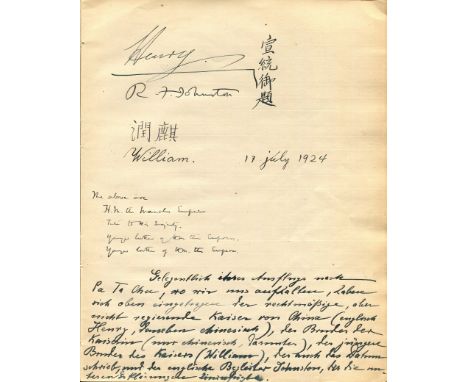 Henry.
宣統御題
R. F. Johnston
潤麒
William. 17 july 1924
The above are
H.M. the Manchu Emperor
Tutor to His Majesty.
Younger brother of H.M. the Empress.
Younger brother of H.M. the Emperor.
Gelegentlich ihres Ausflugs nach
Pa Ta Chu, wo wir uns aufhalten, haben
sich oben eingetragen der rechtmäßige, aber
nicht regierende Kaiser von China (englisch
Henry, daneben chinesisch), der Bruder der
Kaiserin (nur chinesisch, darunter), der jüngere
Bruder des Kaisers (William), der auch das Datum
schrieb, und der englische Begleiter Johnston, der die un-
teren Erklärungen